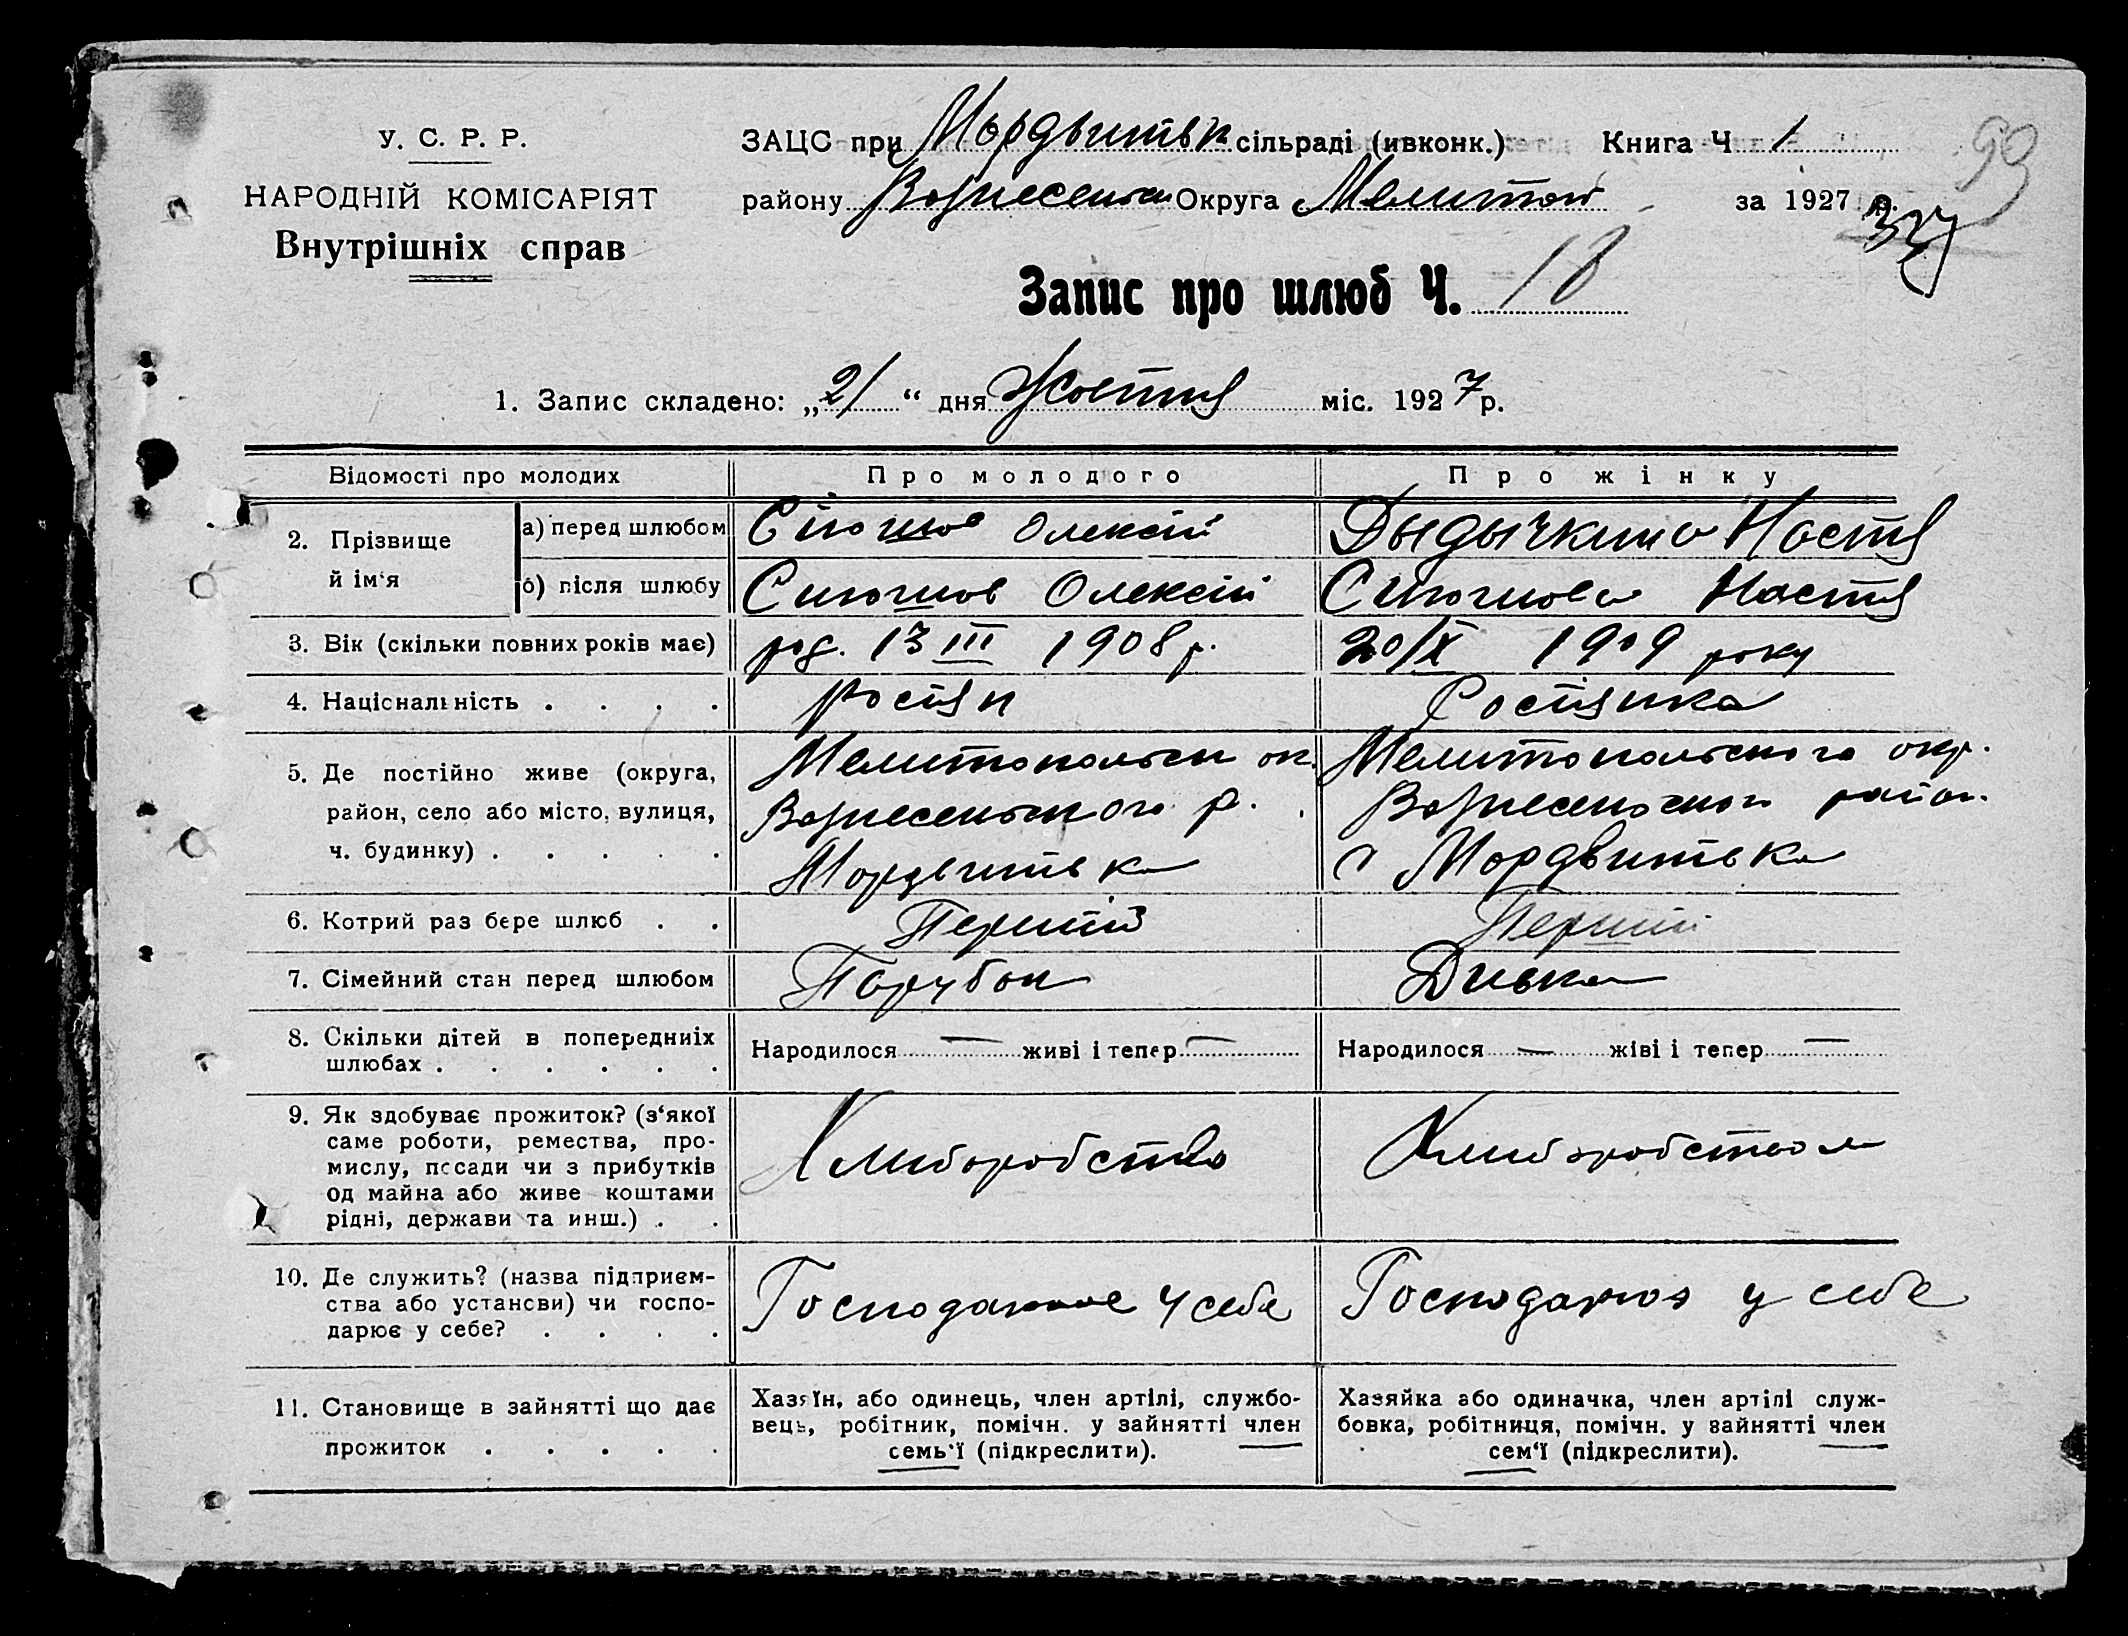 У. С. Р. Р.
НАРОДНІЙ КОМІСАРІЯТ
Внутрішніх справ
ЗАЦС при Мордвитьк сільраді (ивконк.) Книга Ч 1
90
району Вознесенськ Округа Мелитоп за 1927 р.
327
Запис про шлюб Ч. 18
1. Запис складено: „21“ дня Жовтня міс. 1927 р.
Відомості про молодих Про молодого Про жінку
2. Прізвище й ім‘я
а) перед шлюбом Олексій Дыдычкина Настя
б) після шлюбу Олексій Настя
3. Вік (скільки повних років має) род. 13 III 1908 р. 20/X 1909 року
4. Національність . . . . росіян Росіянка
5. Де постійно живе (округа, Мелитопольськ ок. Мелитопольського окр.
район, село або місто, вулиця, Вознесенського р. Вознесенського район.
ч. будинку) . . . . . Мордвитька с Мордвитька
6. Котрий раз бере шлюб . . Перший Перший
7. Сімейний стан перед шлюбом Парубок Дивка
8. Скільки дітей в попередниіх шлюбах . . . . . .
Народилося — живі і тепер — Народилося — жіві і тепер —
9. Як здобуває прожиток? (з‘якої
саме роботи, ремества, про-
мислу, посади чи з прибутків
од майна або живе коштами
рідні, держави та инш.) . .
Хлиборобство Хлиборобством
10. Де служить? (назва підприєм-
ства або установи) чи госпо-
дарює у себе? . . . .
у себе Господарюэ у себе
11. Становище в зайнятті що дає
прожиток . . . . .
Хазяїн, або одинець, член артілі, службо-
вець, робітник, помічн. у зайнятті член
семь‘ї (підкреслити).
Хазяйка або одиначка, член артілі служ-
бовка, робітниця, помічн. у зайнятті член
сем‘ї (підкреслити).